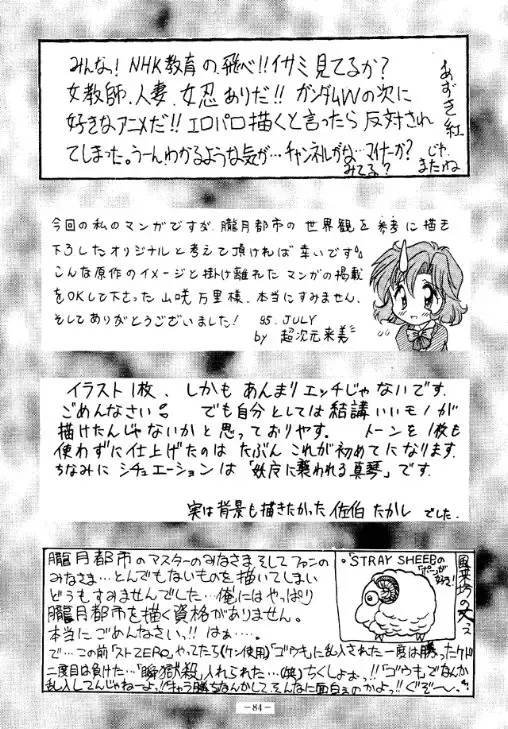 みんな! NHK教育の、飛べ!!イサミ見てるか?
女教師、人妻、女忍ありだ!! ガンダムWの次に
好きなアニメだ!! エロパロ描くと言ったら反対され
てしまった。うーんわかるような気が…チャンネルがな…マイナーか?
みてる?
あずき紅
じゃ、
またね
今回の私のマンガですが、朧月都市の世界観を参考に描き
下ろしたオリジナルと考えて頂ければ幸いです。
こんな原作のイメージと掛け離れたマンガの掲載
をOKして下さった山咲万里様、本当にすみません、
そしてありがとうございました! 95. JULY
by 超次元来美
イラスト1枚、しかもあんまりエッチじゃないです。
ごめんなさい。でも自分としては結講いいモノが
描けたんじゃないかと思っておりやす。トーンを1枚も
使わずに仕上げたのはたぶんこれが初めてになります。
ちなみにシチュエーションは「妖に襲われる真琴」です。
実は背景も描きたかった佐伯たかしでした。
朧月都市のマスターのみなさまそしてファンの
みなさま…とんでもないものを描いてしまい
どうもすみませんでした…俺にはやっぱり
朧月都市を描く資格がありません。
本当にごめんなさい。!! はぁ‥‥。
で…この前「ストZERO」やってたら(ケン使用)「ゴウキ」に乱入された一度は勝ったケド
二度目は負けた…「瞬獄殺」入れられた…(哭)ちくしょおっ!!「ゴウキ」でなんか
乱入してんじゃねーよっ!!キャラ勝ちなんかしてそんなに面白えのかよっ!!ぐぞ〜っ。
・「STRAY SHEEP」の「ポー」が好き!
風来坊の
－84－